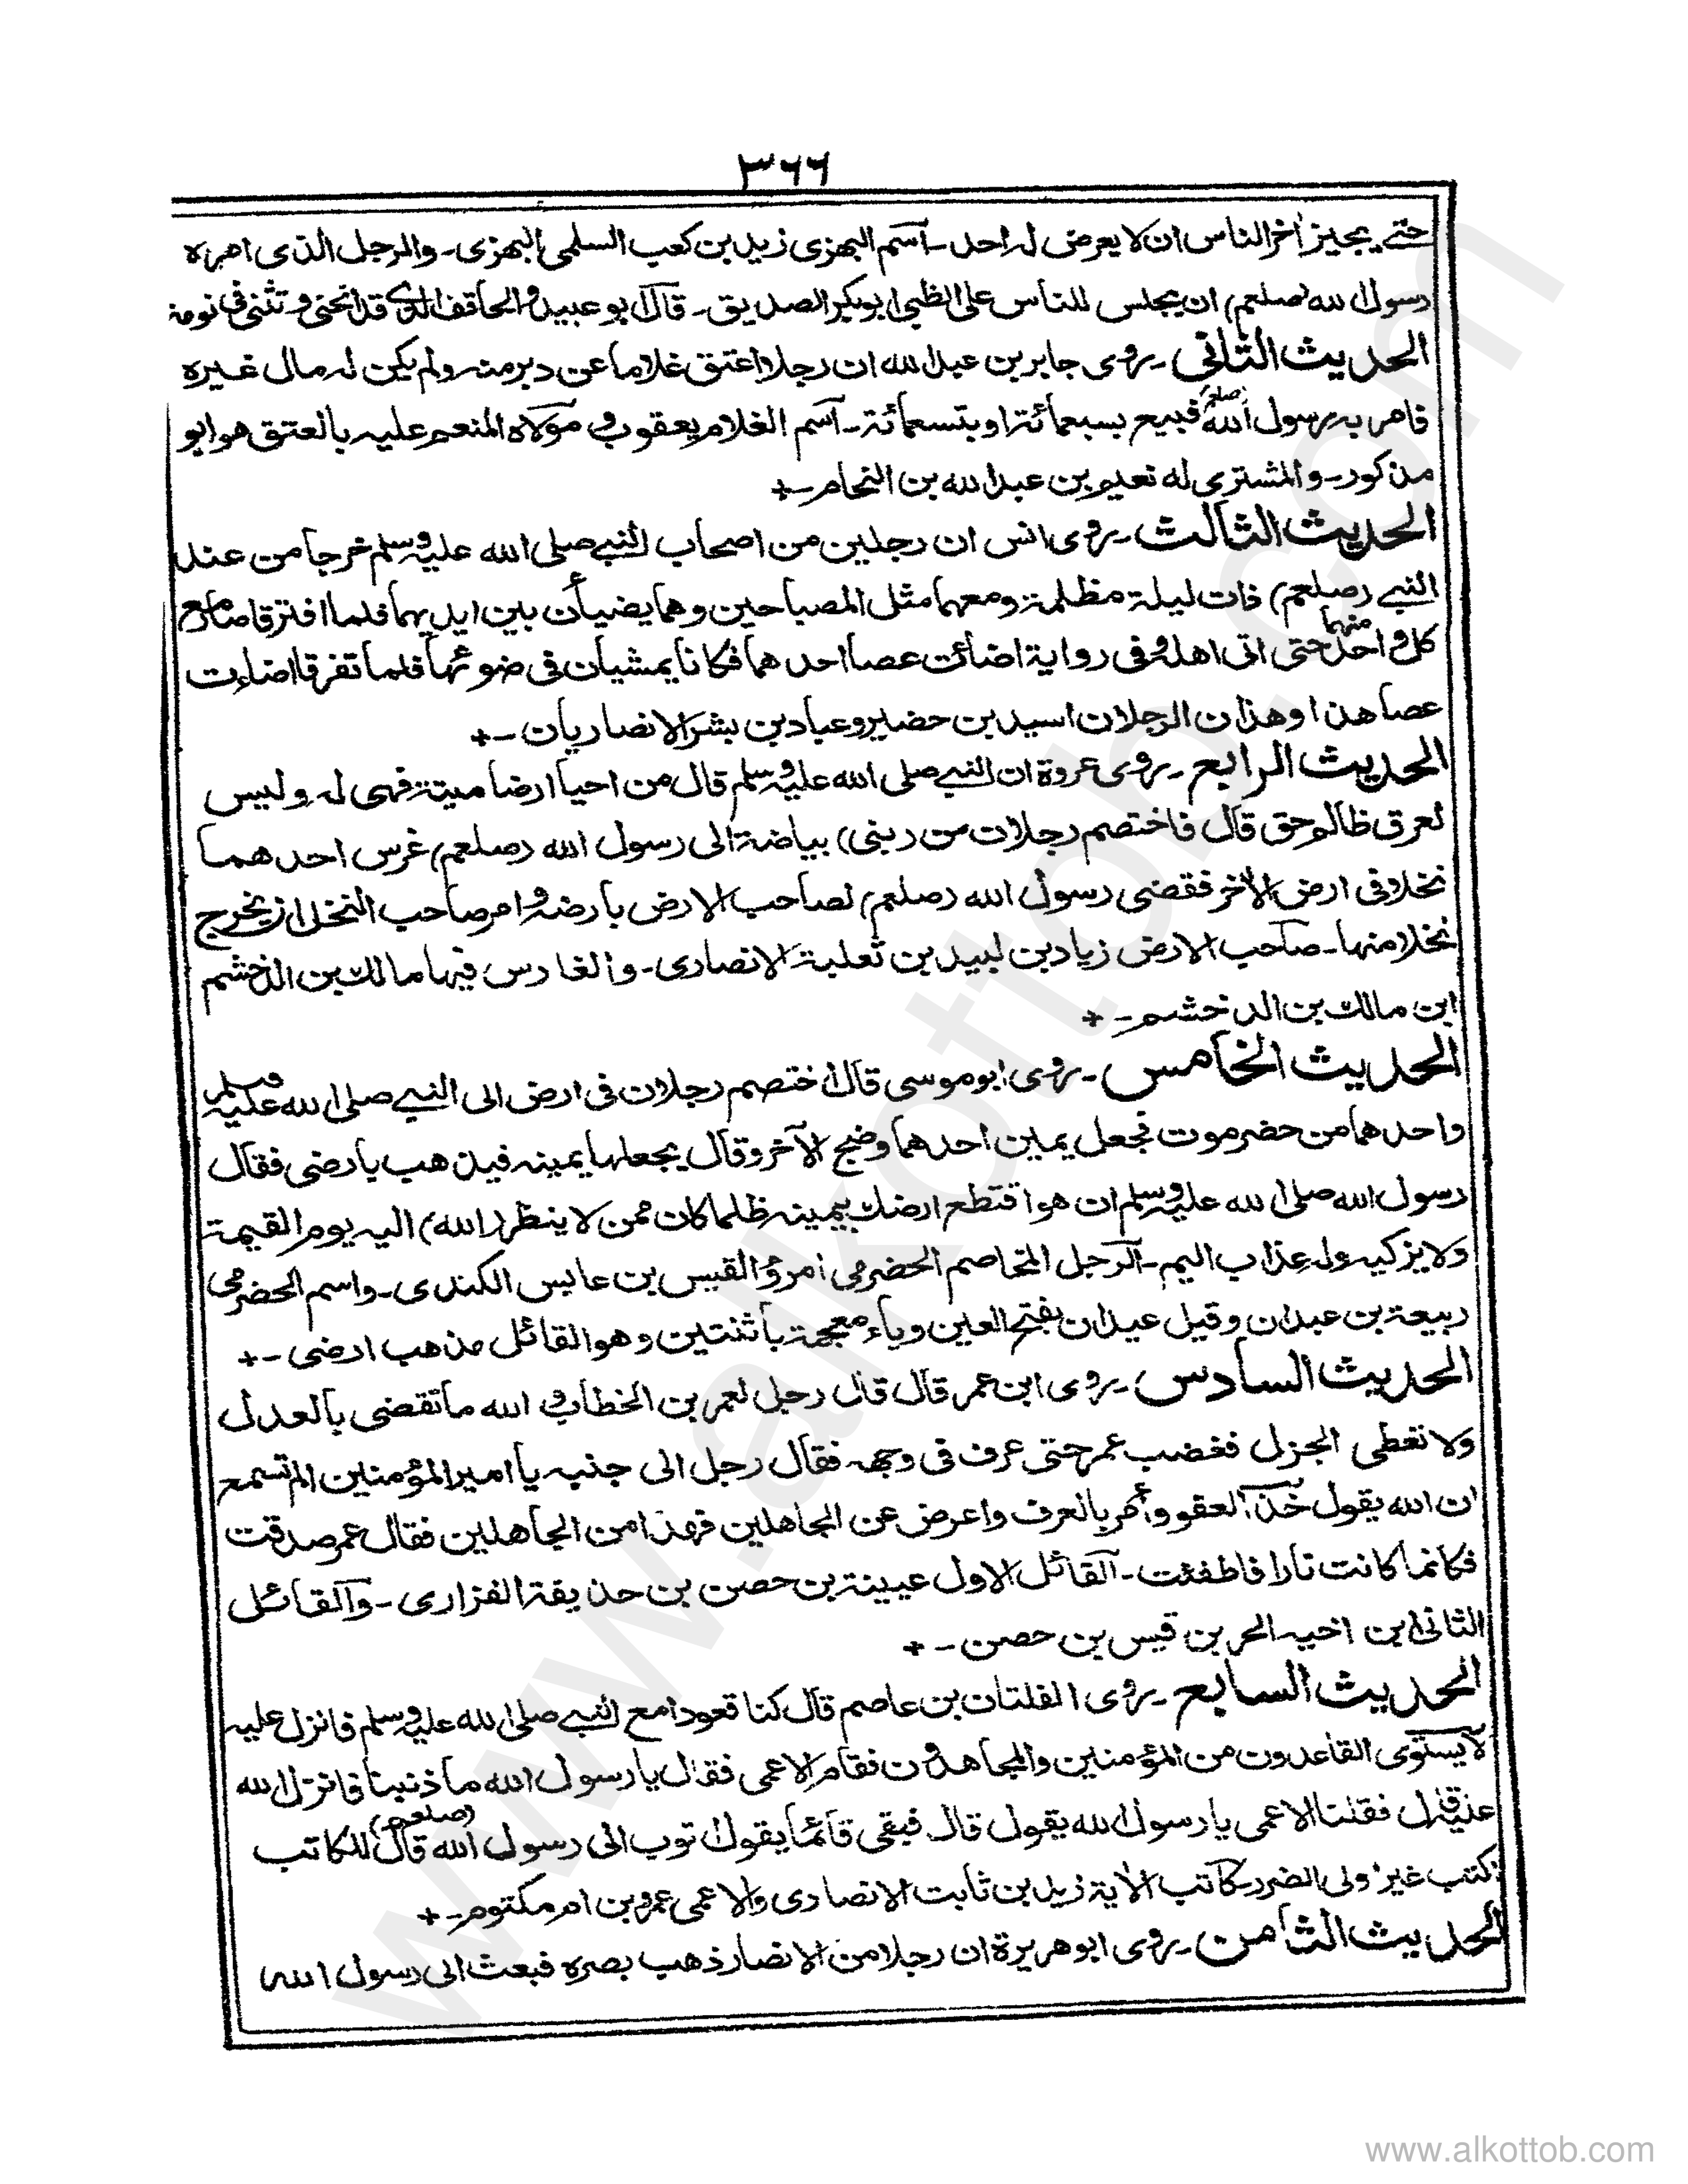 ٣٦٦
حتے يجيز اٰخر الناس ان لا يعرض له احد ـ اسم البهزى زيد بن كعب السلمى البهزى ـ والرجل الذى امره
رسول الله (صلعم) ان يجلس للناس على الظبى ابوبكر الصديق ـ قال ابو عبيد والحاقف الذى قد انحنى وتثنى فى نومه
الحديث الثانى ـ روى جابر بن عبد الله ان رجلا اعتق غلاما عن دبر منه ولم يكن له مال غيره
فامر به رسول الله صلعم فبيع بسبعمائة او بتسعمائة ـ اسم الغلام يعقوب و مولاه المنعم عليه بالعتق هو ابو
مذكور ـ والمشترى له نعيم بن عبد الله بن النحام ـ +
الحديث الثالث ـ روى انس ان رجلين من اصحاب النبے صلى الله عليه وسلم خرجا من عند
النبے (صلعم) ذات ليلة مظلمة ومعهما مثل المصباحين وهما يضيأن بين ايديهما فلما افترقا صار مع
كل واحد منهما حتى اتى اهله وفى رواية اضائت عصا احدهما فكانا يمشيان فى ضوئها فلما تفرقا اضاءت
عصا هذا وهذان الرجلان اسيد بن حضير وعباد بن بشر الانصاريان ـ +
الحديث الرابع ـ روى عروة ان النبے صلى الله عليه وسلم قال من احيا ارضا ميتة فهى له وليس
لعرق ظالم حق قال فاختصم رجلان من (بنى) بياضة الى رسول الله (صلعم) غرس احدهما
نخلا فى ارض الاٰخر فقضى رسول الله (صلعم) لصاحب الارض بارضه وامر صاحب النخل ان يخرج
نخلا منها ـ صاحب الارض زياد بن لبيد بن ثعلبة الانصارى ـ والغارس فيها مالك بن الدخشم
ابن مالك بن الدخشم ـ +
الحديث الخامس ـ روى ابو موسى قال اختصم رجلان فى ارض الى النبے صلى الله عليه وسلم
واحدهما من حضرموت فجعل يمين احدهما وضج الاٰخر وقال يجعلها يمينه فيذهب بارضى فقال
رسول الله صلى الله عليه وسلم ان هو اقتطع ارضك بيمينه ظلما كان ممن لا ينظر (الله) اليه يوم القيمة
ولا يزكيه وله عذاب اليم ـ الرجل المخاصم الحضرمى امرؤ القيس بن عابس الكندى ـ واسم الحضرمى
ربيعة بن عبدان وقيل عيدان بفتح العين وياء معجمة باثنتين وهو القائل مذهب ارضى ـ +
الحديث السادس ـ روى ابن عمر قال قال رجل لعمر بن الخطاب والله ما تقضى بالعدل
ولا تعطى الجزل فغضب عمر حتى عرف فى وجهه فقال رجل الى جنبه يا امير المؤمنين الم تسمع
ان الله يقول خذ العفو وأمر بالعرف واعرض عن الجاهلين فهذا من الجاهلين فقال عمر صدقت
فكانما كانت نارا فاطفئت ـ القائل الاول عيينة بن حصن بن حذيفة الفزارى ـ والقائل
الثانى ابن اخيه الحر بن قيس بن حصن ـ +
الحديث السابع ـ روى الفلتان بن عاصم قال كنا قعودا مع النبے صلى الله عليه وسلم فانزل عليه
لا يستوى القاعدون من المؤمنين والمجاهدون فقام الاعمى فقال يا رسول الله ما ذنبنا فانزل الله
عليه فقلنا الاعمى يا رسول الله يقول قال فبقى قائما يقول اتوب الى رسول الله (صلعم) قال للكاتب
اكتب غير اولى الضرر كاتب الاٰية زيد بن ثابت الانصارى والاعمى عمرو بن ام مكتوم ـ +
الحديث الثامن ـ روى ابو هريرة ان رجلا من الانصار ذهب بصره فبعث الى رسول الله
www.alkottob.com
www.alkottob.com